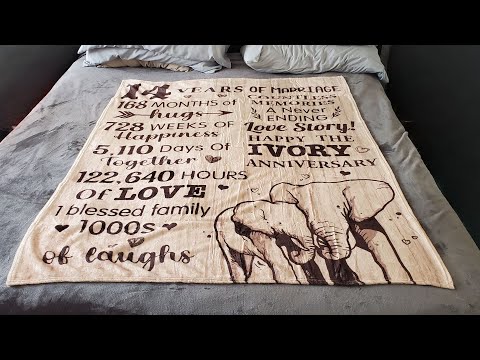 14 YEARS OF MARRIAGE
168 MONTHS of
hugs
728 WEEKS OF
Happiness
5,110 Days Of
Together
122,640 HOURS
Of LOVE
1 blessed family
1000s
of laughs
COUNTLESS
MEMORIES
A Never
ENDING
Love Story!
HAPPY THE
IVORY
ANNIVERSARY